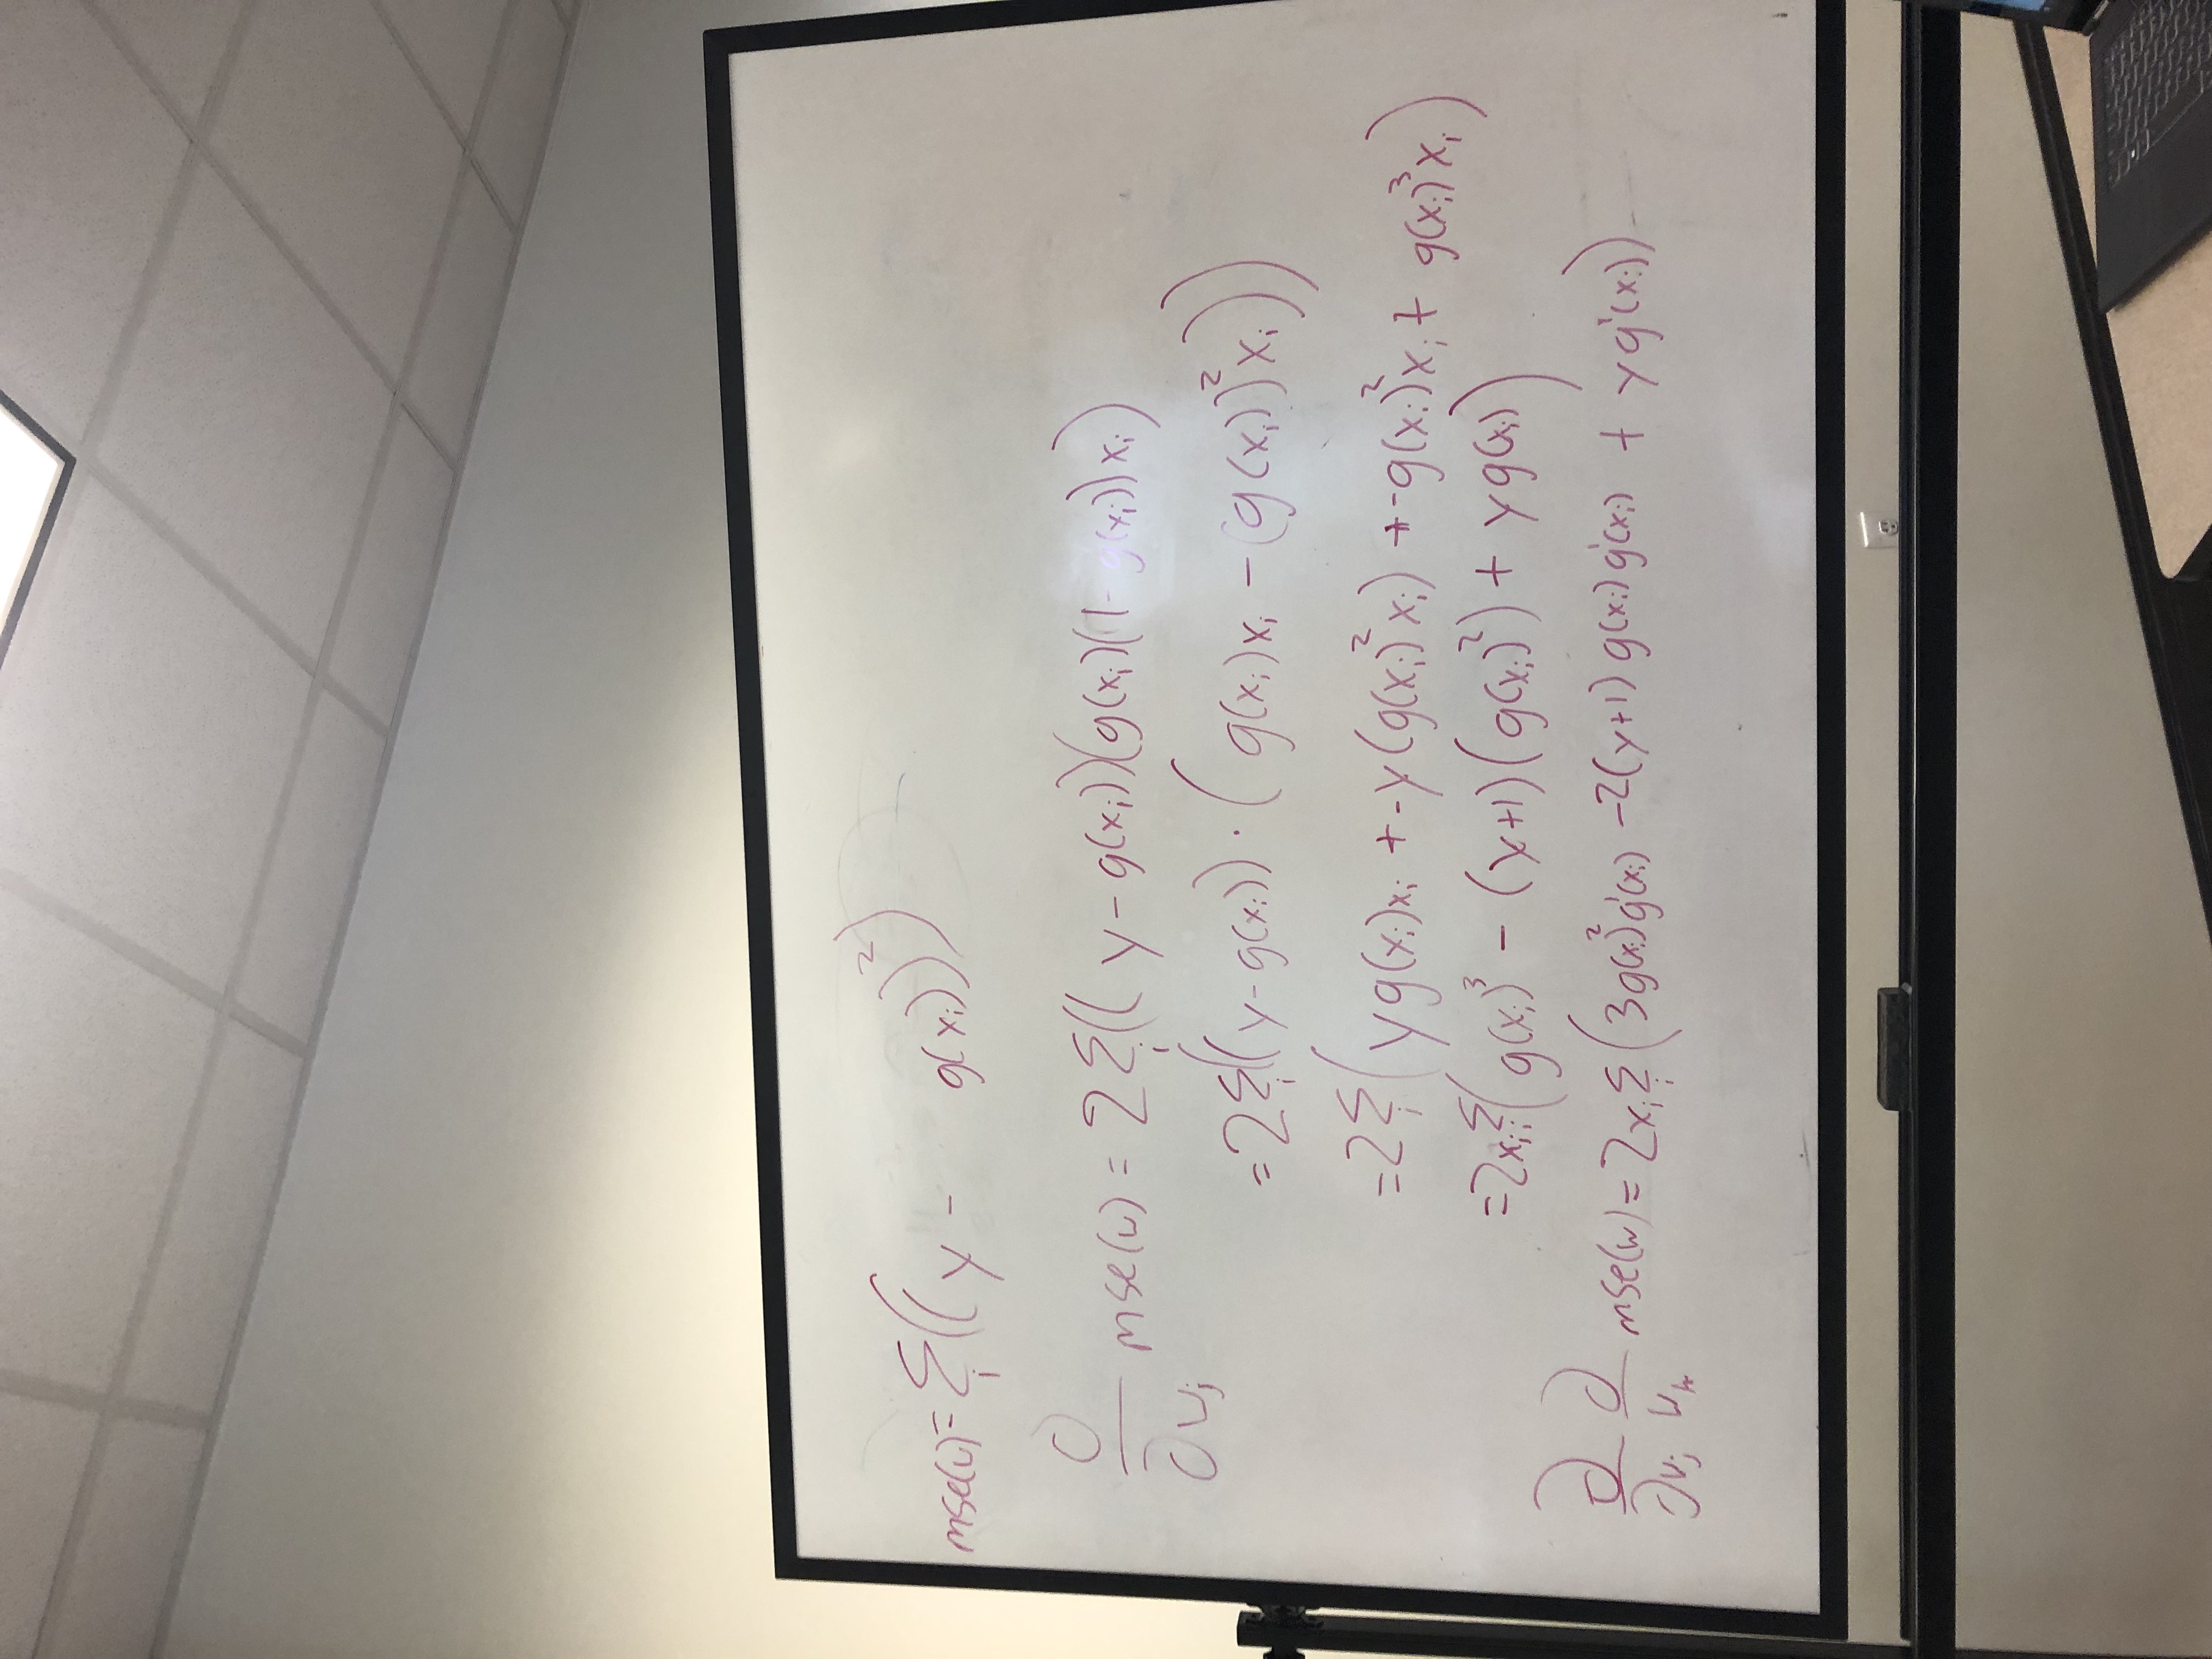 mse(w) = Σᵢ((y - g(xᵢ))²)
∂/∂wⱼ mse(w) = 2Σᵢ((y - g(xᵢ))(g(xᵢ)(1 - g(xᵢ))xᵢ)
= 2Σᵢ((y - g(xᵢ)) · (g(xᵢ)xᵢ - (g(xᵢ))²xᵢ))
= 2Σᵢ(yg(xᵢ)xᵢ + -y(g(xᵢ)²xᵢ) + -g(xᵢ)²xᵢ + g(xᵢ)³xᵢ)
= 2xᵢΣᵢ(g(xᵢ)³ - (y+1)(g(xᵢ)²) + yg(xᵢ))
∂/∂wⱼ ∂/wₖ mse(w) = 2xᵢΣᵢ(3g(xᵢ)²g'(xᵢ) - 2(y+1)g(xᵢ)g'(xᵢ) + yg'(xᵢ))